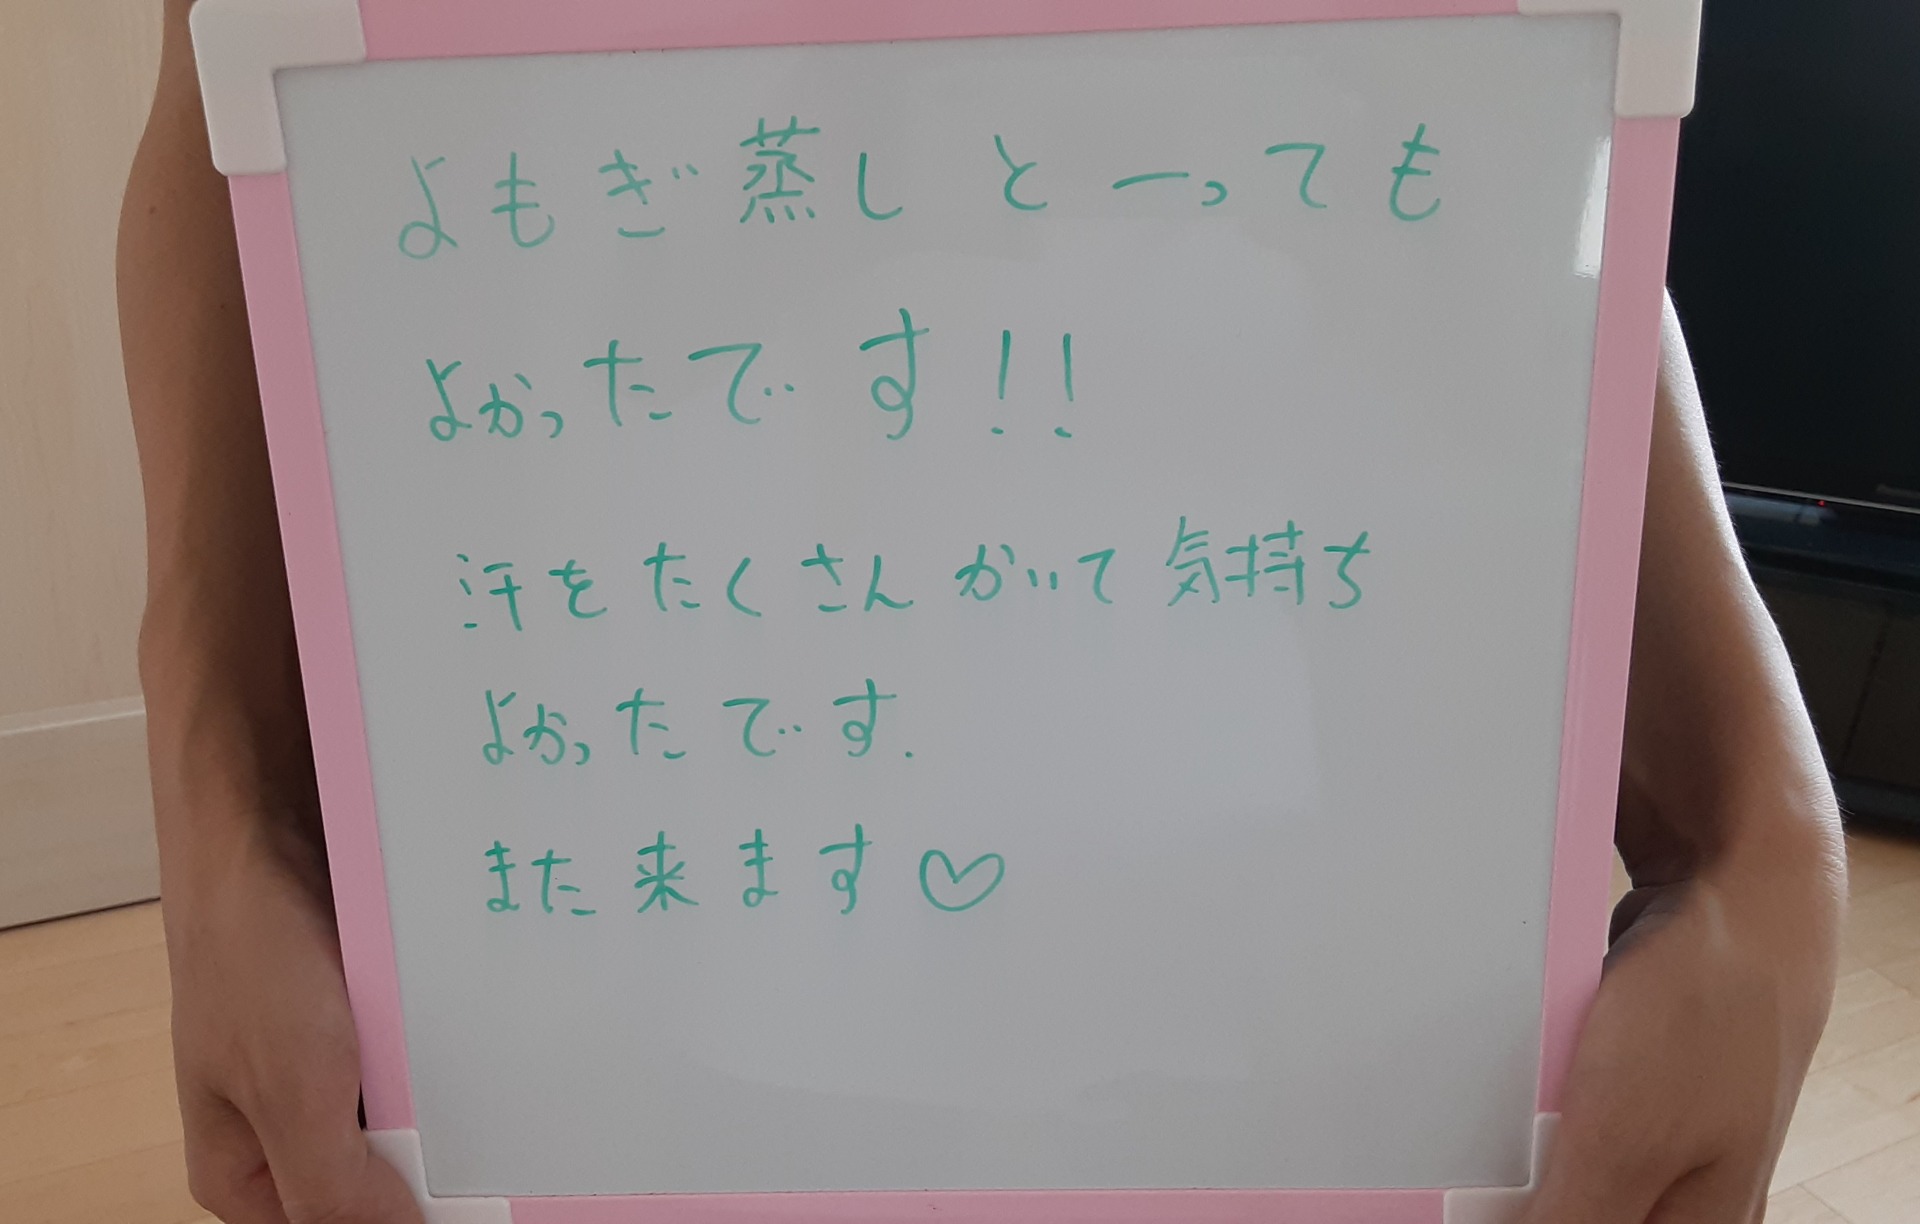 よもぎ蒸しとーっても
よかったです!!
汗をたくさんかいて気持ち
よかったです.
また来ます♡